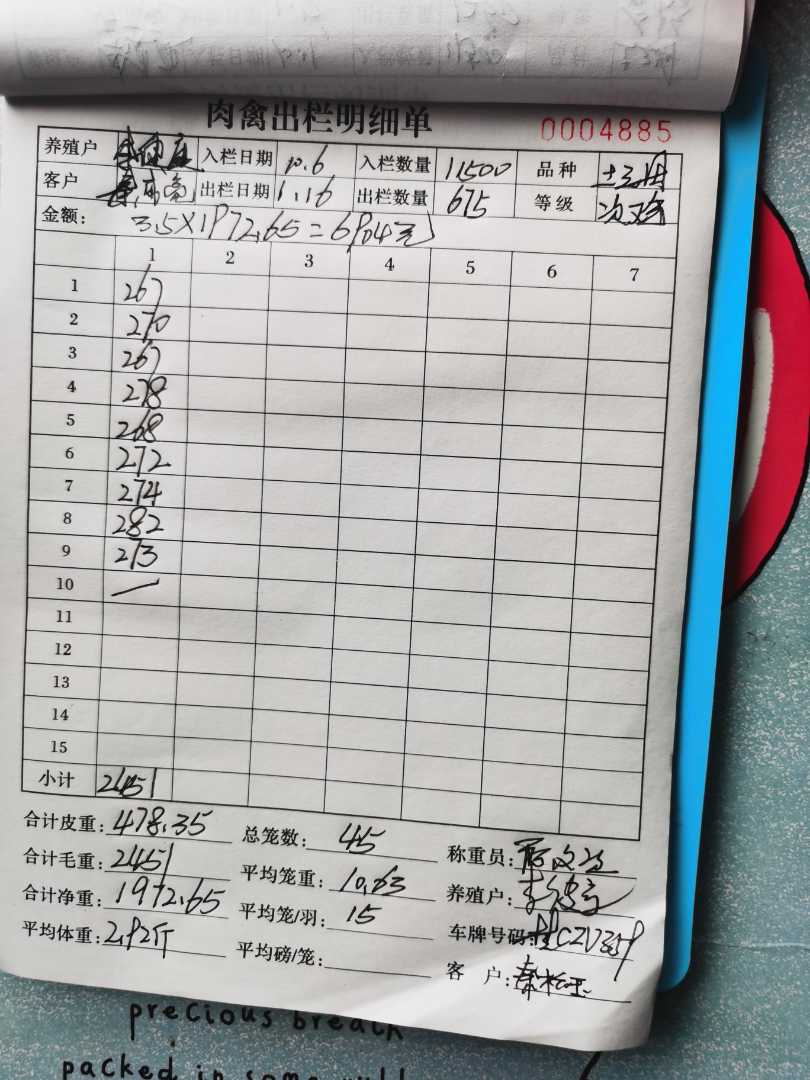 肉禽出栏明细单 0004885
养殖户 入栏日期 10.6 入栏数量 11500 品种
客户 出栏日期 1.16 出栏数量 675 等级 次鸡
金额: 3.5×1972.65=6904元
1 2 3 4 5 6 7
1 267
2 270
3 267
4 278
5 268
6 272
7 274
8 282
9 273
10 —
11
12
13
14
15
小计 2451
合计皮重: 478.35 总笼数: 45 称重员:
合计毛重: 2451 平均笼重: 10.63 养殖户:
合计净重: 1972.65 平均笼/羽: 15 车牌号码:
平均体重: 2.92斤 平均磅/笼: 客 户:
precious breath
packed in some